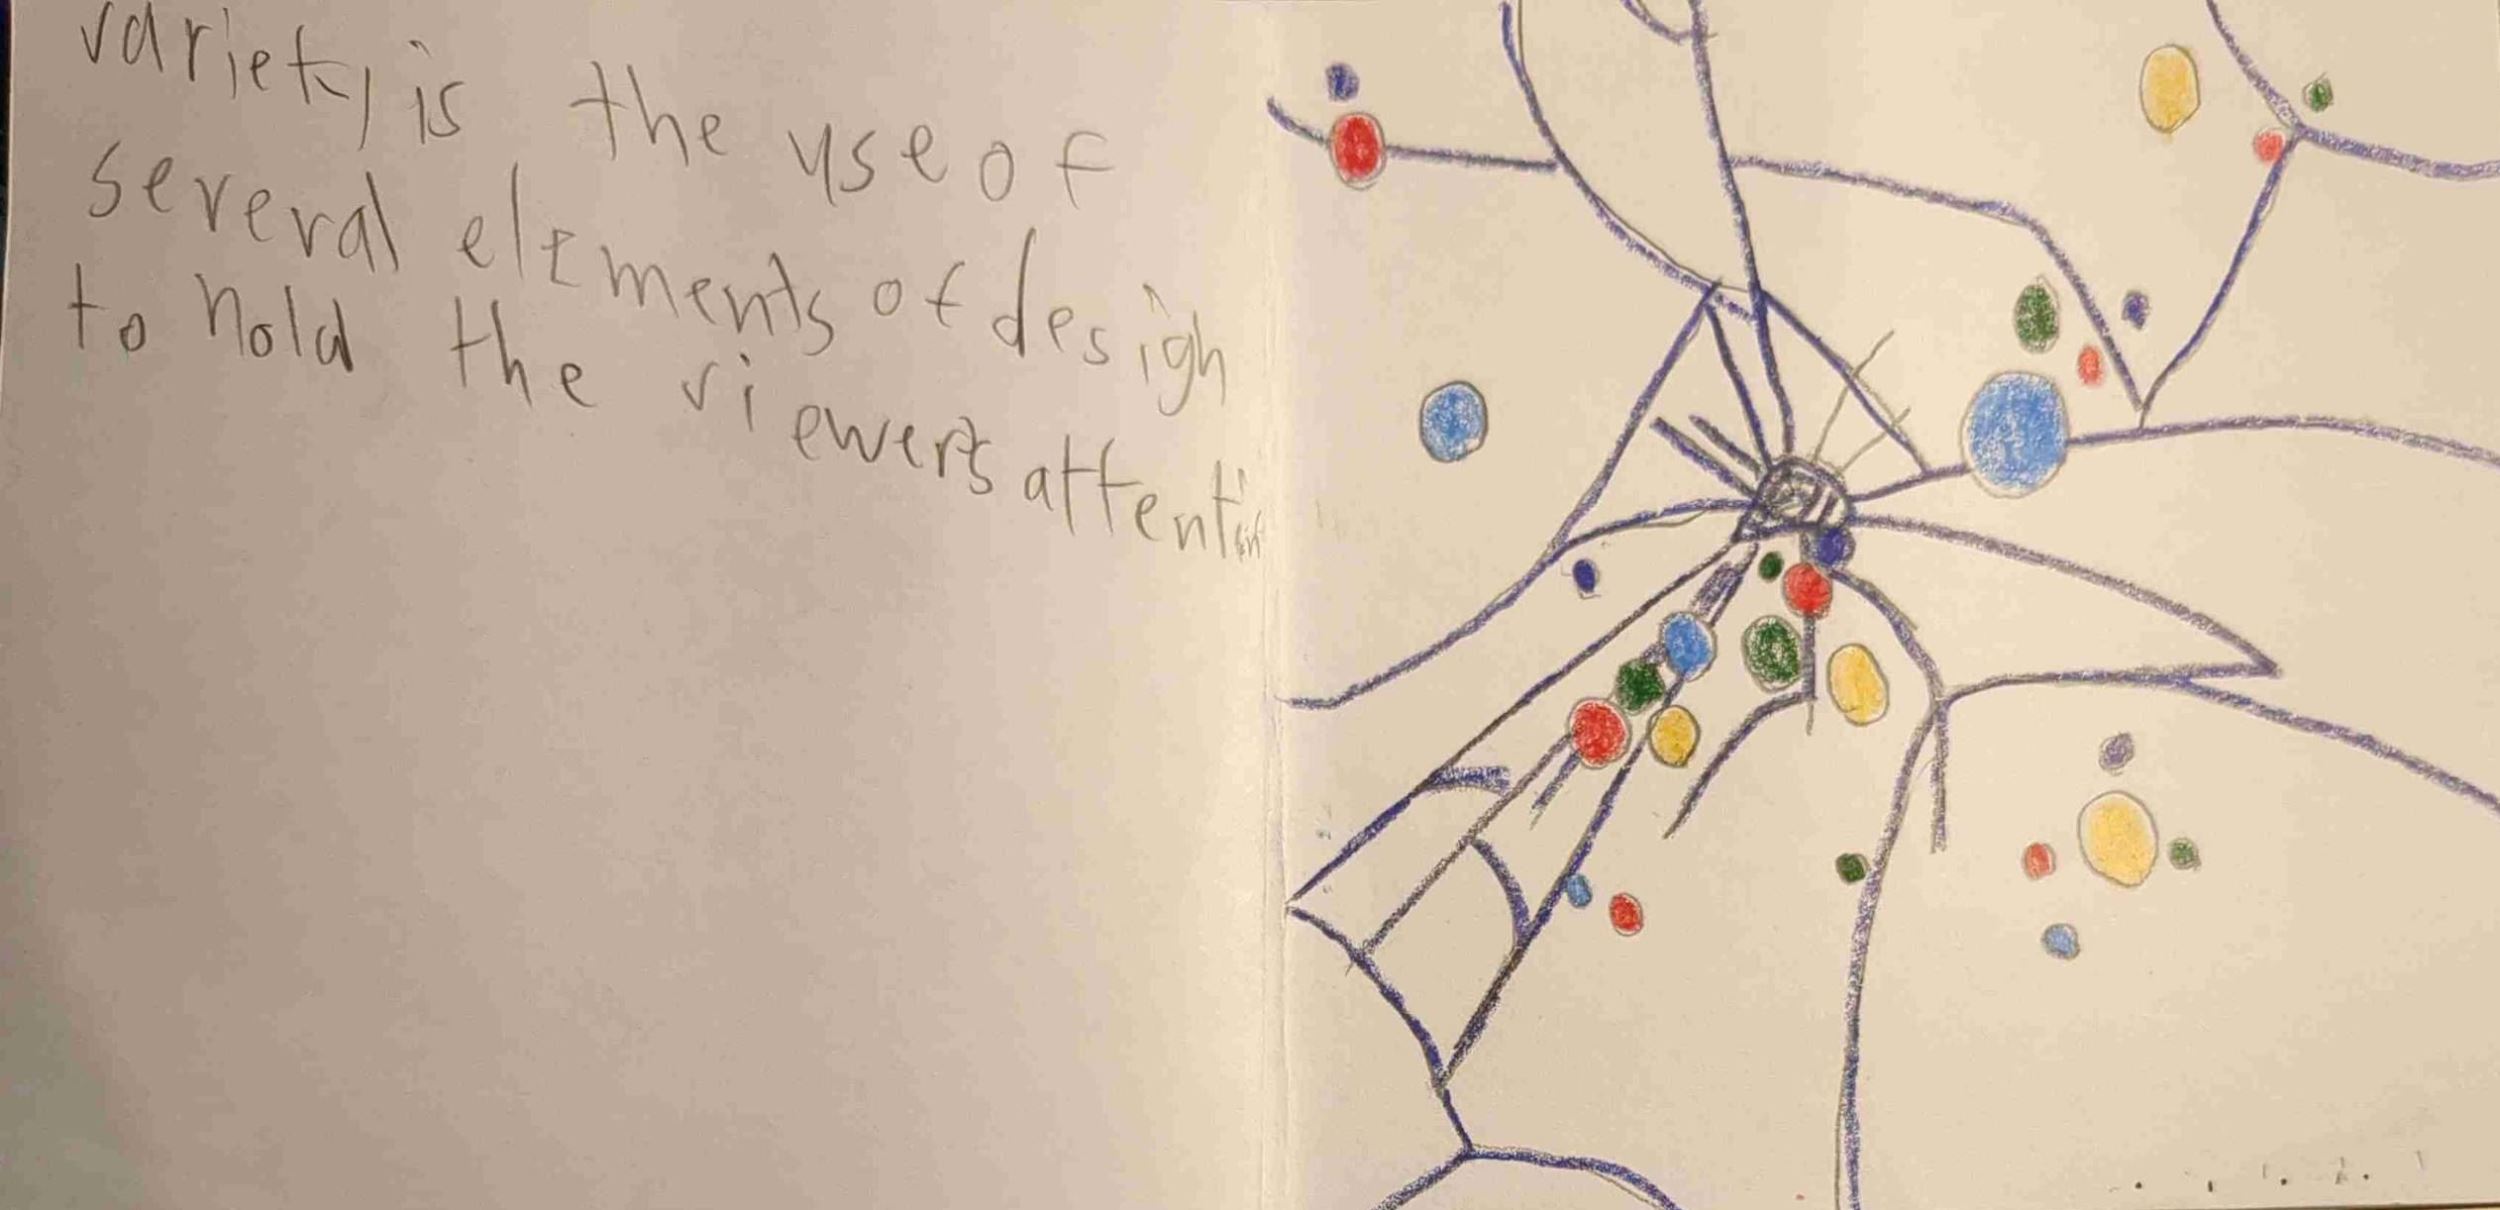 variety is the use of
several elements of design
to hold the viewer's attention